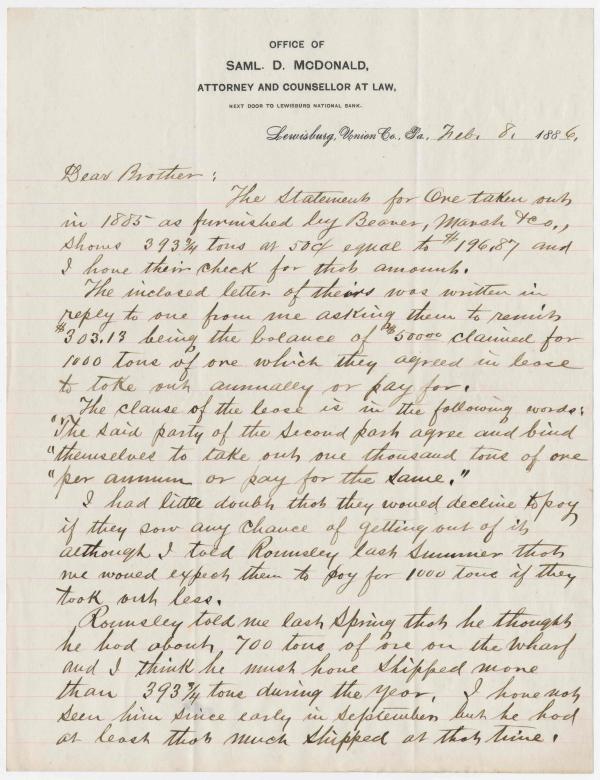 OFFICE OF
SAML. D. McDONALD,
ATTORNEY AND COUNSELLOR AT LAW,
NEXT DOOR TO LEWISBURG NATIONAL BANK.
Lewisburg, Union Co., Pa. Feb. 8. 1886.
Dear Brother:
The Statement for Ore taken out
in 1885 as furnished by Beaver, Marsh & Co.,
Shows 393 3/4 tons at 50¢ equal to $196.87 and
I have their check for that amount.
The inclosed letter of theirs was written in
reply to one from me asking them to remit
$303.13 being the balance of $500 00 claimed for
1000 tons of ore which they agreed in lease
to take out annually or pay for.
The clause of the lease is in the following words:
"The said party of the Second part agree and bind
"themselves to take out one thousand tons of ore
"per annum or pay for the same."
I had little doubt that they would decline to pay
if they saw any chance of getting out of it
although I told Roumsley last Summer that
we would expect them to pay for 1000 tons if they
took out less.
Roumsley told me last Spring that he thought
he had about 700 tons of ore on the Wharf
and I think he must have Shipped more
than 393 3/4 tons during the year. I have not
seen him since early in September but he had
at least that much Shipped at that time.